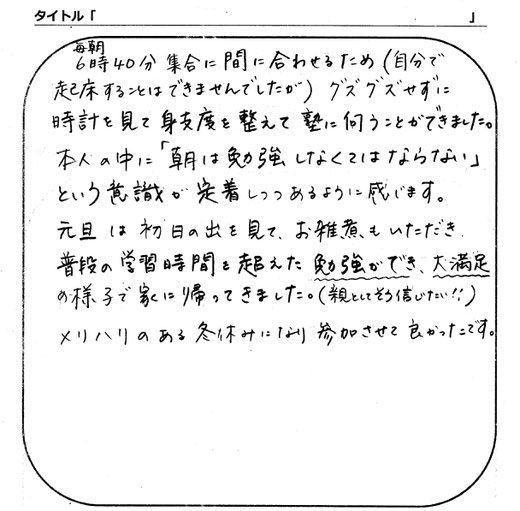 タイトル「 」
毎朝
6時40分集合に間に合わせるため(自分で
起床することはできませんでしたが)グズグズせずに
時計を見て身支度を整えて塾に伺うことができました。
本人の中に「朝は勉強しなくてはならない」
という意識が定着しつつあるように感じます。
元旦は初日の出を見て、お雑煮もいただき、
普段の学習時間を超えた勉強ができ、大満足
の様子で家に帰ってきました。(親としてそう信じたい!!)
メリハリのある冬休みになり参加させて良かったです。